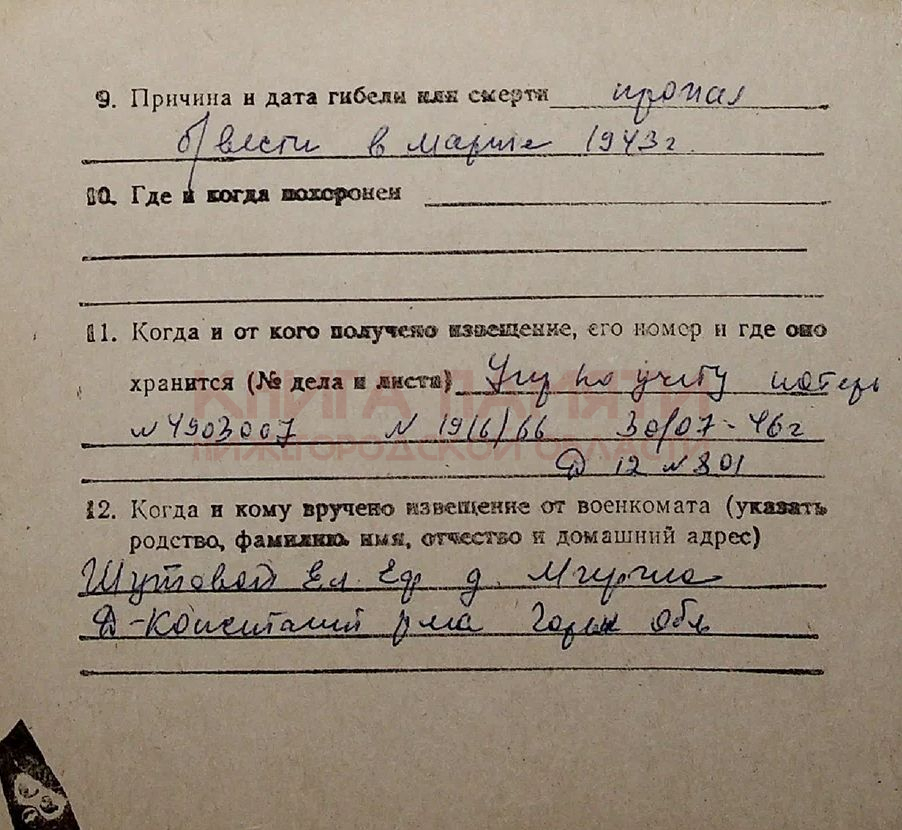 9. Причина и дата гибели или смерти пропал
б/вести в марте 1943 г.
10. Где и когда похоронен
11. Когда и от кого получено извещение, его номер и где оно
хранится (№ дела и листа) Упр по учету потерь
КНИГА ПАМЯТИ
№ 4903007 N 19/6/66 30/07-46 г
НИЖЕГОРОДСКОЙ ОБЛАСТИ
Д 12 № 801
12. Когда и кому вручено извещение от военкомата (указать
родство, фамилию, имя, отчество и домашний адрес)
Шутовой Ел. Еф. д.
Д-Константин р-на Горьк обл